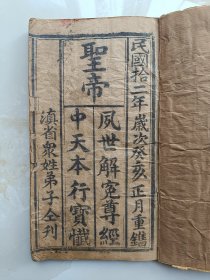 民國拾二年歲次癸亥正月重鐫
聖帝
夙世解寃尊經
中天本行寶懺
滇省衆姓弟子仝刊